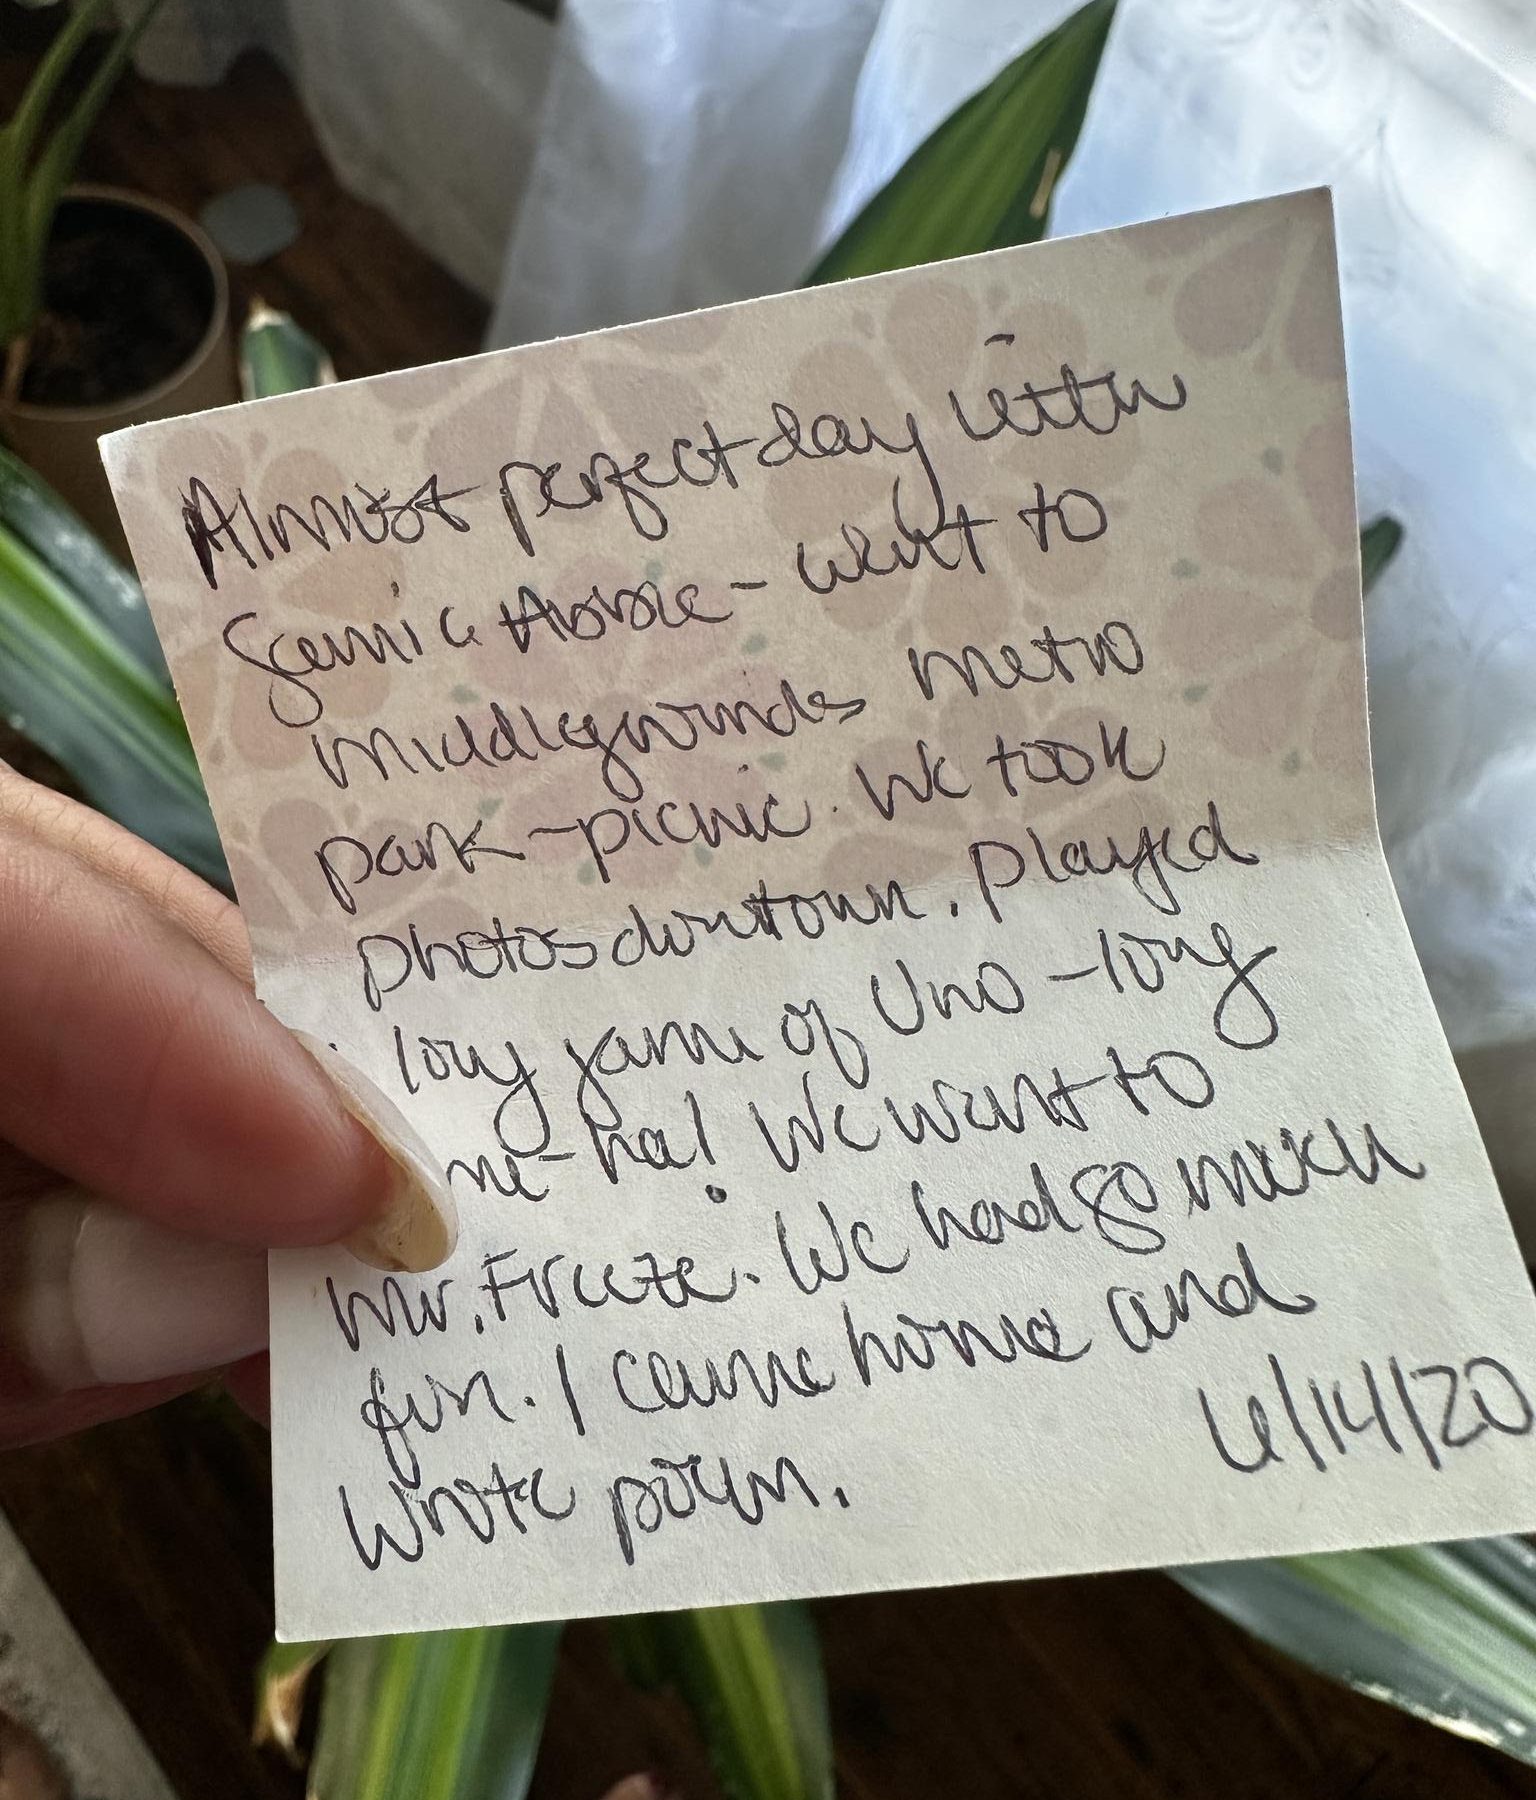 Almost perfect day with
Jamie & Abbie - went to
Middlegrounds metro
park - picnic. We took
photos downtown. Played
long game of Uno - long
me - ha! We went to
Mr. Freeze. We had so much
fun. I came home and
wrote poem.
6/14/20